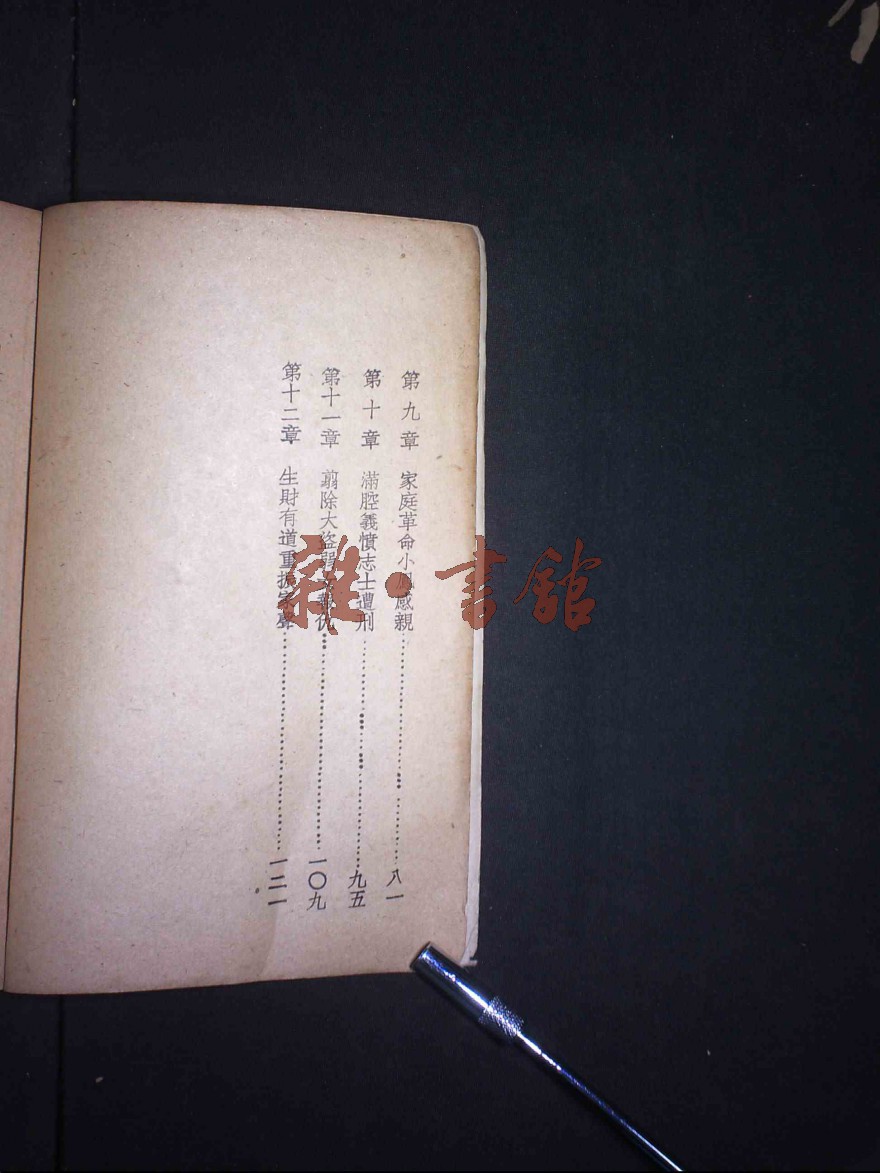 第九章　家庭革命小鳳感親………………八一
第十章　滿腔義憤志士遭刑………………九五
第十一章　翦除大盜 報仇………………一〇九
第十二章　生財有道重振家聲………………一二一
雜·書館